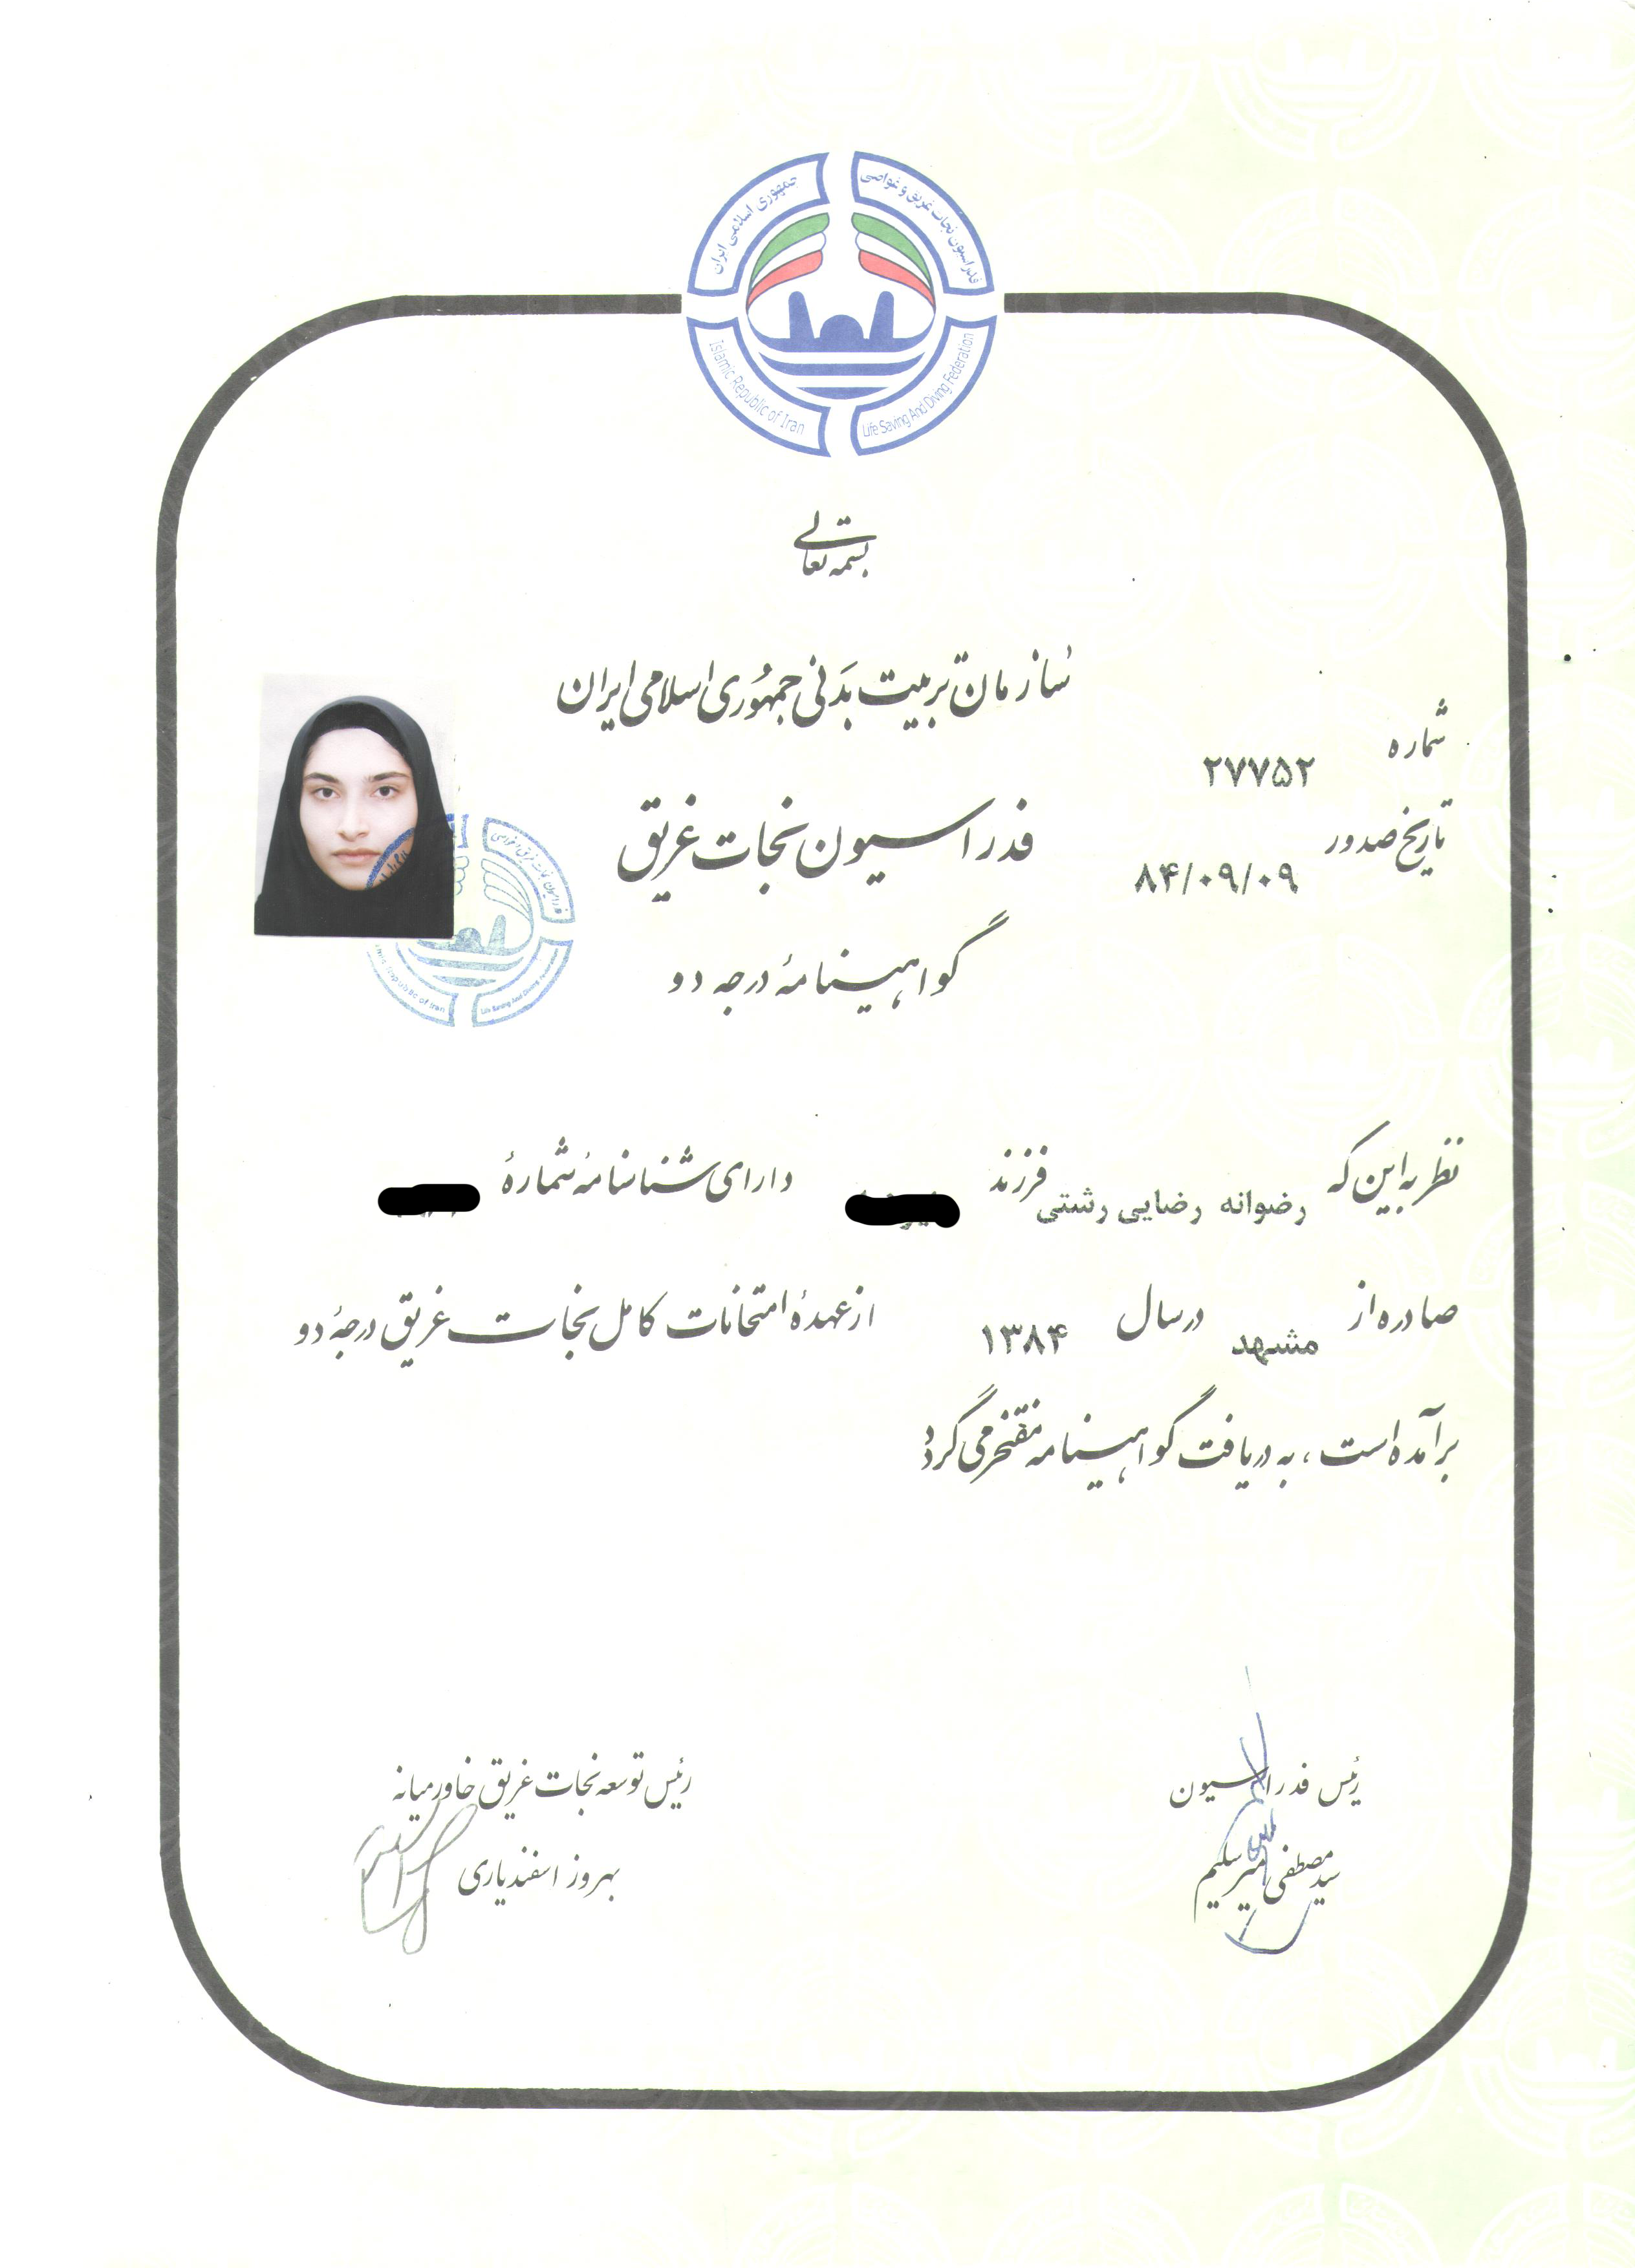 جمهوری اسلامی ایران
فدراسیون نجات غریق و غواصی
Islamic Republic of Iran
Life Saving And Diving Federation
بسمه تعالی
سازمان تربیت بدنی جمهوری اسلامی ایران
شماره ۲۷۷۵۲
فدراسیون نجات غریق
تاریخ صدور ۸۴/۰۹/۰۹
گواهینامهٔ درجه دو
نظر به این که رضوانه رضایی رشتی فرزند دارای شناسنامهٔ شمارهٔ
صادره از مشهد در سال ۱۳۸۴ از عهدهٔ امتحانات کامل نجات غریق درجهٔ دو
برآمده است ، به دریافت گواهینامه مفتخر می گردد
رئیس فدراسیون
سید مصطفی میرسلیم
رئیس توسعه نجات غریق خاورمیانه
بهروز اسفندیاری